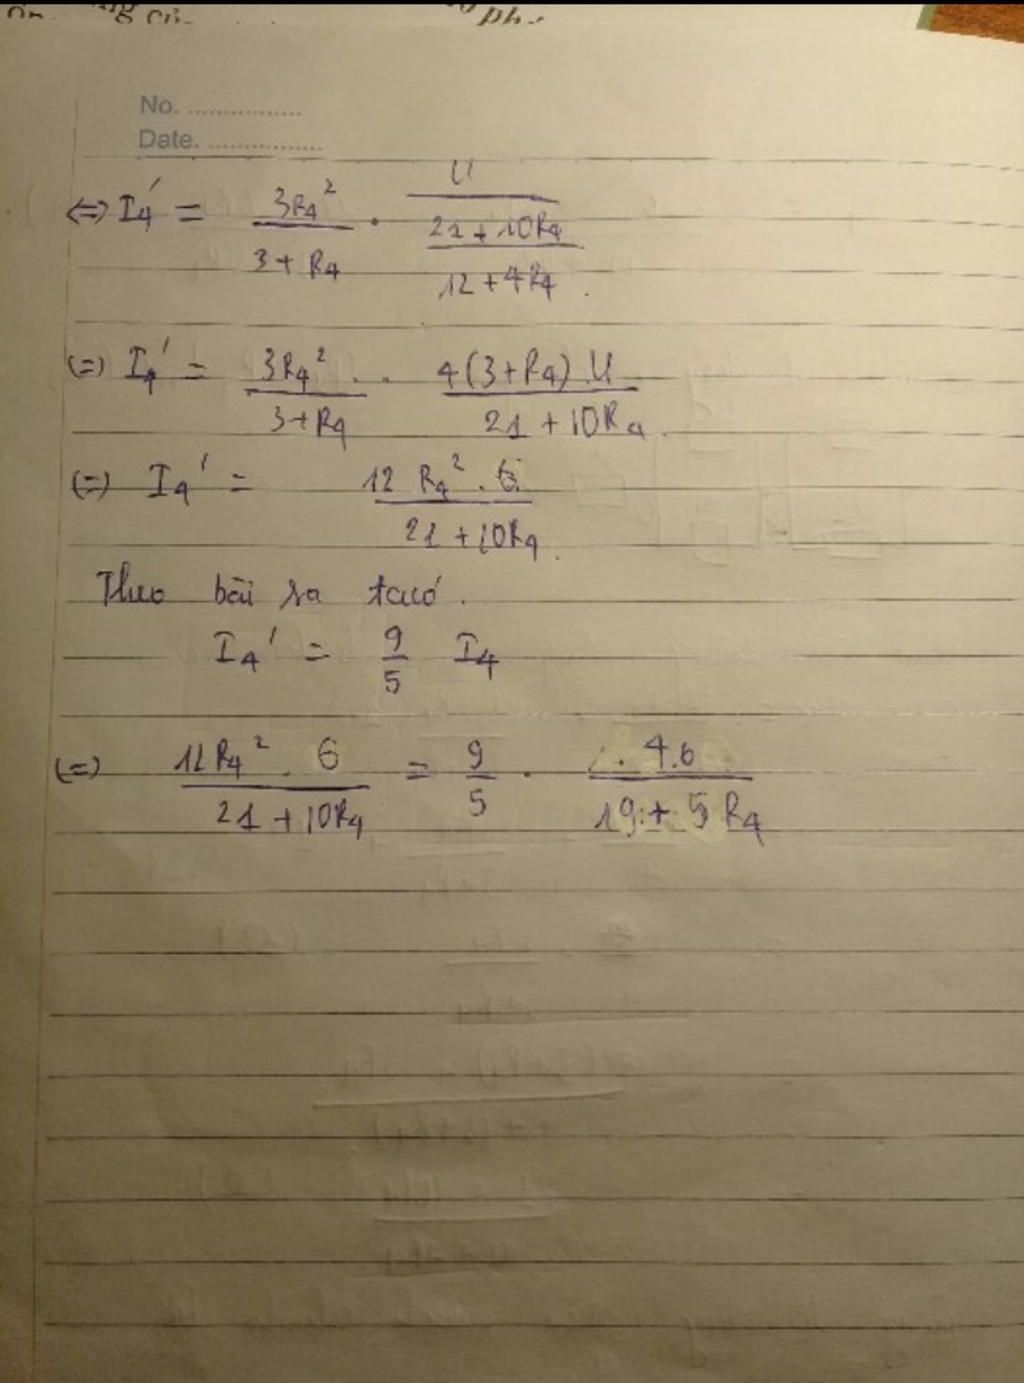 No. ................
Date. ................
⇔ I₄' = 3R₄² / (3 + R₄) . U / ((21 + 10R₄) / (12 + 4R₄)) .
(=) I₄' = 3R₄² / (3 + R₄) . . 4(3 + R₄) . U / (21 + 10R₄) .
(=) I₄' = 12 R₄² . 6 / (21 + 10R₄) .
Theo bài ra ta có .
I₄' = 9/5 I₄
(=) 12R₄² . 6 / (21 + 10R₄) = 9/5 . 4.6 / (19 + 5 R₄)